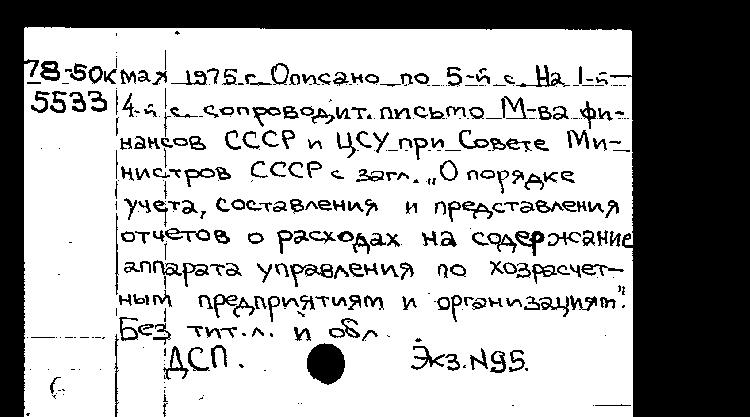 78-50к мая 1975 г. Описано по 5-й с. На 1-й—
5533 4-й с. сопроводит. письмо М-ва фи-
нансов СССР и ЦСУ при Совете Ми-
нистров СССР с загл. „О порядке
учета, составления и представления
отчетов о расходах на содержание
аппарата управления по хозрасчет-
ным предприятиям и организациям".
Без тит. л. и обл.
ДСП. Экз. N95.
6